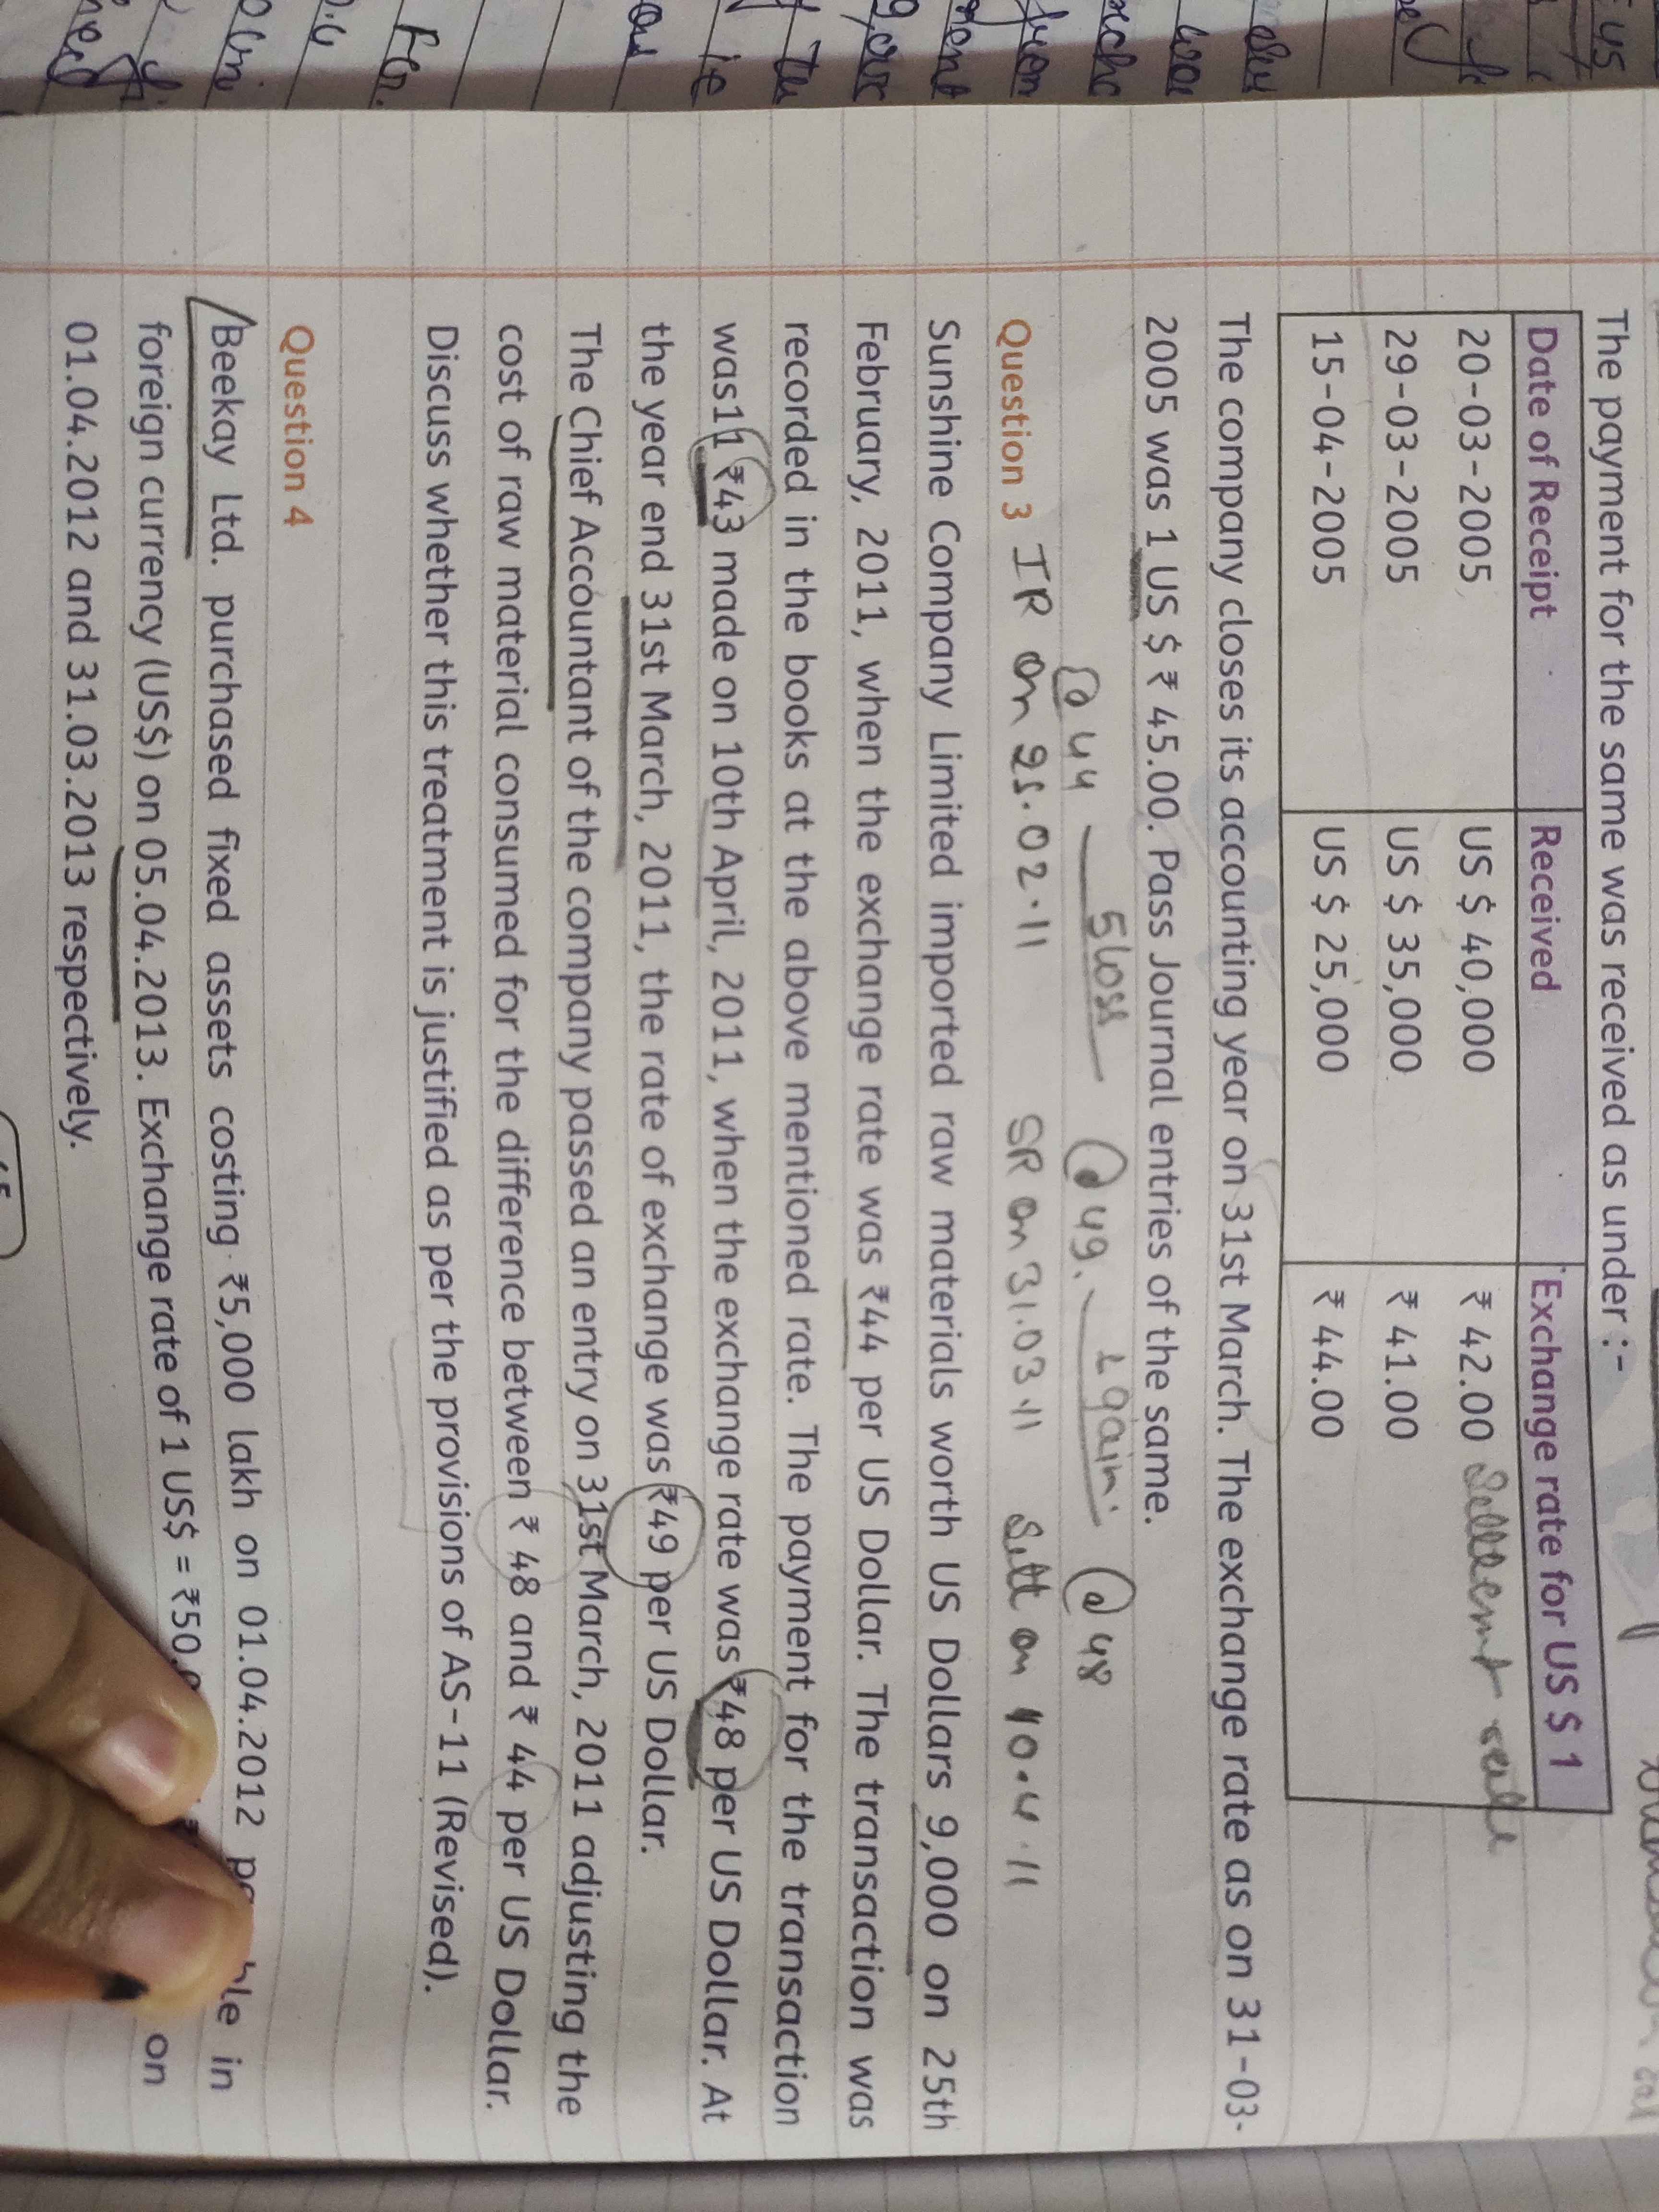 The payment for the same was received as under :-
Date of Receipt Received Exchange rate for US $ 1
20-03-2005 US $ 40,000 ₹ 42.00 Settlement rate
29-03-2005 US $ 35,000 ₹ 41.00
15-04-2005 US $ 25,000 ₹ 44.00
The company closes its accounting year on 31st March. The exchange rate as on 31-03-
2005 was 1 US $ ₹ 45.00. Pass Journal entries of the same.
@ 44 5 loss @ 49. 1 gain @ 48
Question 3 IR on 25.02.11 SR on 31.03.11 Sett on 10.4.11
Sunshine Company Limited imported raw materials worth US Dollars 9,000 on 25th
February, 2011, when the exchange rate was ₹44 per US Dollar. The transaction was
recorded in the books at the above mentioned rate. The payment for the transaction
was11 ₹43 made on 10th April, 2011, when the exchange rate was ₹48 per US Dollar. At
the year end 31st March, 2011, the rate of exchange was ₹49 per US Dollar.
The Chief Accountant of the company passed an entry on 31st March, 2011 adjusting the
cost of raw material consumed for the difference between ₹ 48 and ₹ 44 per US Dollar.
Discuss whether this treatment is justified as per the provisions of AS-11 (Revised).
Question 4
Beekay Ltd. purchased fixed assets costing ₹5,000 lakh on 01.04.2012 in
foreign currency (US$) on 05.04.2013. Exchange rate of 1 US$ = ₹50. on
01.04.2012 and 31.03.2013 respectively.